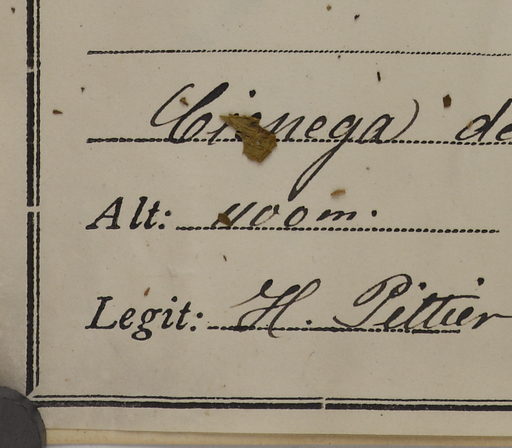 Cienega de
Alt: 400m.
Legit: H. Pittier